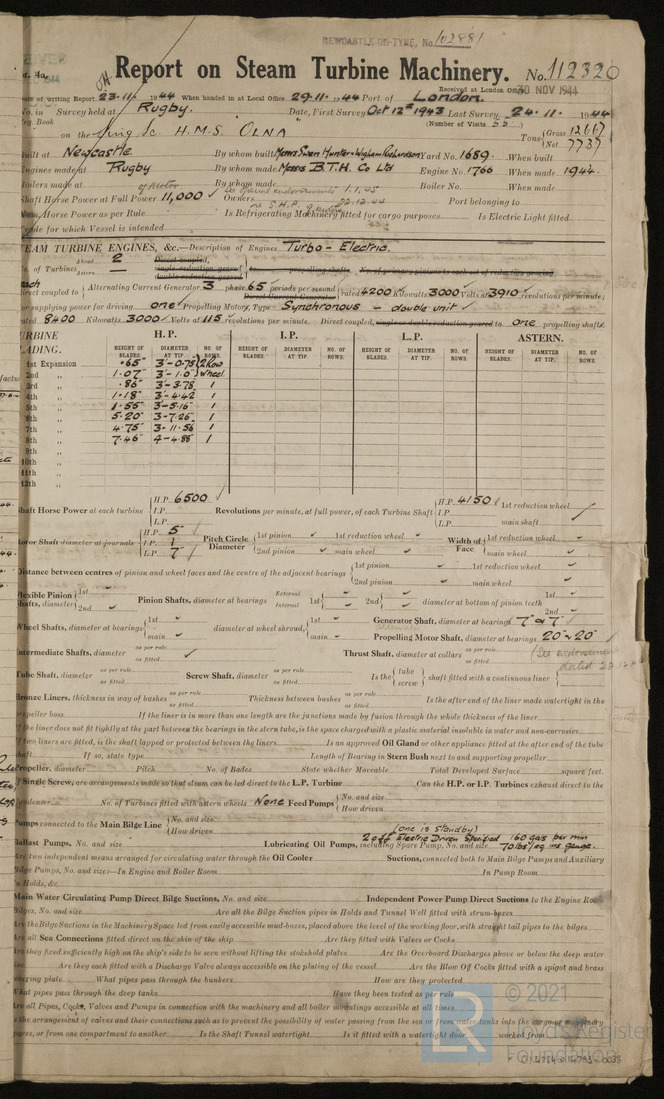 NEWCASTLE-ON-TYNE, No. 102881
Report on Steam Turbine Machinery. No. 112320
Received at London on 30 NOV 1944
Date of writing Report 23.11. 1944 When handed in at Local Office 29.11. 1944 Port of London.
No. in Survey held at Rugby. Date, First Survey Oct 12th 1943 Last Survey 24.11. 1944
Reg. Book (Number of Visits 52)
on the Sing. Sc. H.M.S. OLNA Tons {Gross 12667 Net 7737
Built at Newcastle. By whom built Messrs Swan Hunter & Wigham Richardson Yard No. 1689. When built
Engines made at Rugby By whom made Messrs B.T.H. Co Ltd Engine No. 1766 When made 1944.
Boilers made at By whom made Boiler No. When made
Shaft Horse Power at Full Power 11,000 Owners Port belonging to
Nom. Horse Power as per Rule Is Refrigerating Machinery fitted for cargo purposes Is Electric Light fitted
Trade for which Vessel is intended
STEAM TURBINE ENGINES, &c.—Description of Engines Turbo-Electric.
No. of Turbines Ahead 2 Astern Direct coupled, single reduction geared double reduction geared to propelling shafts. No. of primary pinions to each set of reduction gearing
direct coupled to {Alternating Current Generator 3 phase 65 periods per second Direct Current Generator} rated 4200 Kilowatts 3000 Volts at 3910 revolutions per minute;
for supplying power for driving one Propelling Motors, Type Synchronous - double unit
rated 8400 Kilowatts 3000 Volts at 115 revolutions per minute. Direct coupled, single or double reduction geared to one propelling shafts.
TURBINE BLADING. H.P. I.P. L.P. ASTERN.
HEIGHT OF BLADES. DIAMETER AT TIP. NO. OF ROWS. HEIGHT OF BLADES. DIAMETER AT TIP. NO. OF ROWS. HEIGHT OF BLADES. DIAMETER AT TIP. NO. OF ROWS. HEIGHT OF BLADES. DIAMETER AT TIP. NO. OF ROWS.
1st Expansion .65" 3'-0.75" 2 Row
2nd ,, 1.07" 3'-1.0" Wheel
3rd ,, .86" 3'-3.78 1
4th ,, 1.18" 3'-4.42 1
5th ,, 1.55" 3'-5.16" 1
6th ,, 5.20" 3'-7.26" 1
7th ,, 4.75" 3'-11.56 1
8th ,, 7.46" 4'-4.88" 1
9th ,,
10th ,,
11th ,,
12th ,,
Shaft Horse Power at each turbine {H.P. 6500 I.P. L.P. Revolutions per minute, at full power, of each Turbine Shaft {H.P. 4150 I.P. L.P. 1st reduction wheel main shaft
Rotor Shaft diameter at journals {H.P. 5" I.P. L.P. 7" Pitch Circle Diameter {1st pinion 1st reduction wheel 2nd pinion main wheel Width of Face {1st reduction wheel main wheel
Distance between centres of pinion and wheel faces and the centre of the adjacent bearings {1st pinion 1st reduction wheel 2nd pinion main wheel
Flexible Pinion Shafts, diameter {1st 2nd Pinion Shafts, diameter at bearings External Internal 1st 2nd diameter at bottom of pinion teeth 1st 2nd
Wheel Shafts, diameter at bearings {1st main diameter at wheel shroud, {1st main Generator Shaft, diameter at bearings 7" & 7"
Propelling Motor Shaft, diameter at bearings 20" & 20"
Intermediate Shafts, diameter as per rule as fitted Thrust Shaft, diameter at collars as per rule as fitted
Tube Shaft, diameter as per rule as fitted Screw Shaft, diameter as per rule as fitted Is the {tube screw} shaft fitted with a continuous liner
Bronze Liners, thickness in way of bushes as per rule as fitted Thickness between bushes as per rule as fitted Is the after end of the liner made watertight in the
propeller boss If the liner is in more than one length are the junctions made by fusion through the whole thickness of the liner
If the liner does not fit tightly at the part between the bearings in the stern tube, is the space charged with a plastic material insoluble in water and non-corrosive
If two liners are fitted, is the shaft lapped or protected between the liners Is an approved Oil Gland or other appliance fitted at the after end of the tube
shaft If so, state type Length of Bearing in Stern Bush next to and supporting propeller
Propeller, diameter Pitch No. of Blades State whether Moveable Total Developed Surface square feet.
If Single Screw, are arrangements made so that steam can be led direct to the L.P. Turbine Can the H.P. or I.P. Turbines exhaust direct to the
Condenser No. of Turbines fitted with astern wheels None Feed Pumps {No. and size How driven
Pumps connected to the Main Bilge Line {No. and size How driven
(one is standby)
Ballast Pumps, No. and size Lubricating Oil Pumps, including Spare Pump, No. and size 2 off Electric Driven Specified 160 gals per min 70 lbs/sq ins gauge.
Are two independent means arranged for circulating water through the Oil Cooler Suctions, connected both to Main Bilge Pumps and Auxiliary
Bilge Pumps, No. and size:—In Engine and Boiler Room In Pump Room
In Holds, &c.
Main Water Circulating Pump Direct Bilge Suctions, No. and size Independent Power Pump Direct Suctions to the Engine Room
Bilges, No. and size Are all the Bilge Suction pipes in Holds and Tunnel Well fitted with strum-boxes
Are the Bilge Suctions in the Machinery Space led from easily accessible mud-boxes, placed above the level of the working floor, with straight tail pipes to the bilges
Are all Sea Connections fitted direct on the skin of the ship Are they fitted with Valves or Cocks
Are they fixed sufficiently high on the ship's side to be seen without lifting the stokehold plates Are the Overboard Discharges above or below the deep water
line Are they each fitted with a Discharge Valve always accessible on the plating of the vessel Are the Blow Off Cocks fitted with a spigot and brass
covering plate What pipes pass through the bunkers How are they protected
What pipes pass through the deep tanks Have they been tested as per rule
Are all Pipes, Cocks, Valves and Pumps in connection with the machinery and all boiler mountings accessible at all times
Is the arrangement of valves and their connections such as to prevent the possibility of water passing from the sea or from water tanks into the cargo or machinery
spaces, or from one compartment to another Is the Shaft Tunnel watertight Is it fitted with a watertight door worked from
© 2021
Lloyd's Register
Foundation